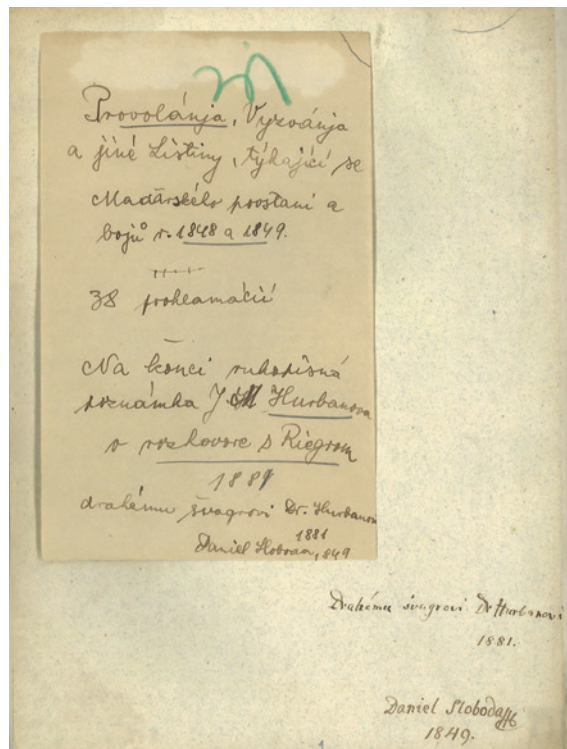 Provolánja, Vyzvánja
a jiné Listiny, týkající se
Maďarského povstani a
bojů r. 1848 a 1849.
38 proklamácií
Na konci rukopisná
poznámka J M Hurbanova
o rozhovore s Riegrom
1881
drahému švagrovi Dr. Hurbanovi
1881
Daniel Sloboda, 1849
Drahému švagrovi Dr Hurbanovi
1881.
Daniel Sloboda
1849.